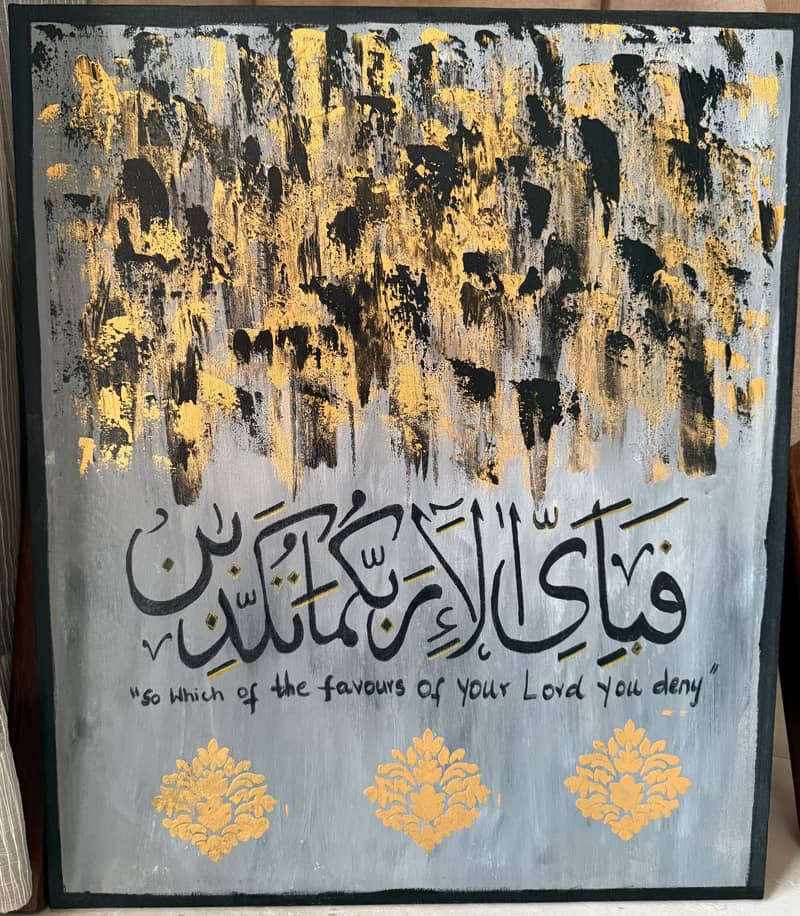 فَبِاَىِّ اٰلَآءِ رَبِّكُمَا تُكَذِّبٰنِ
"So which of the favours of your Lord you deny"